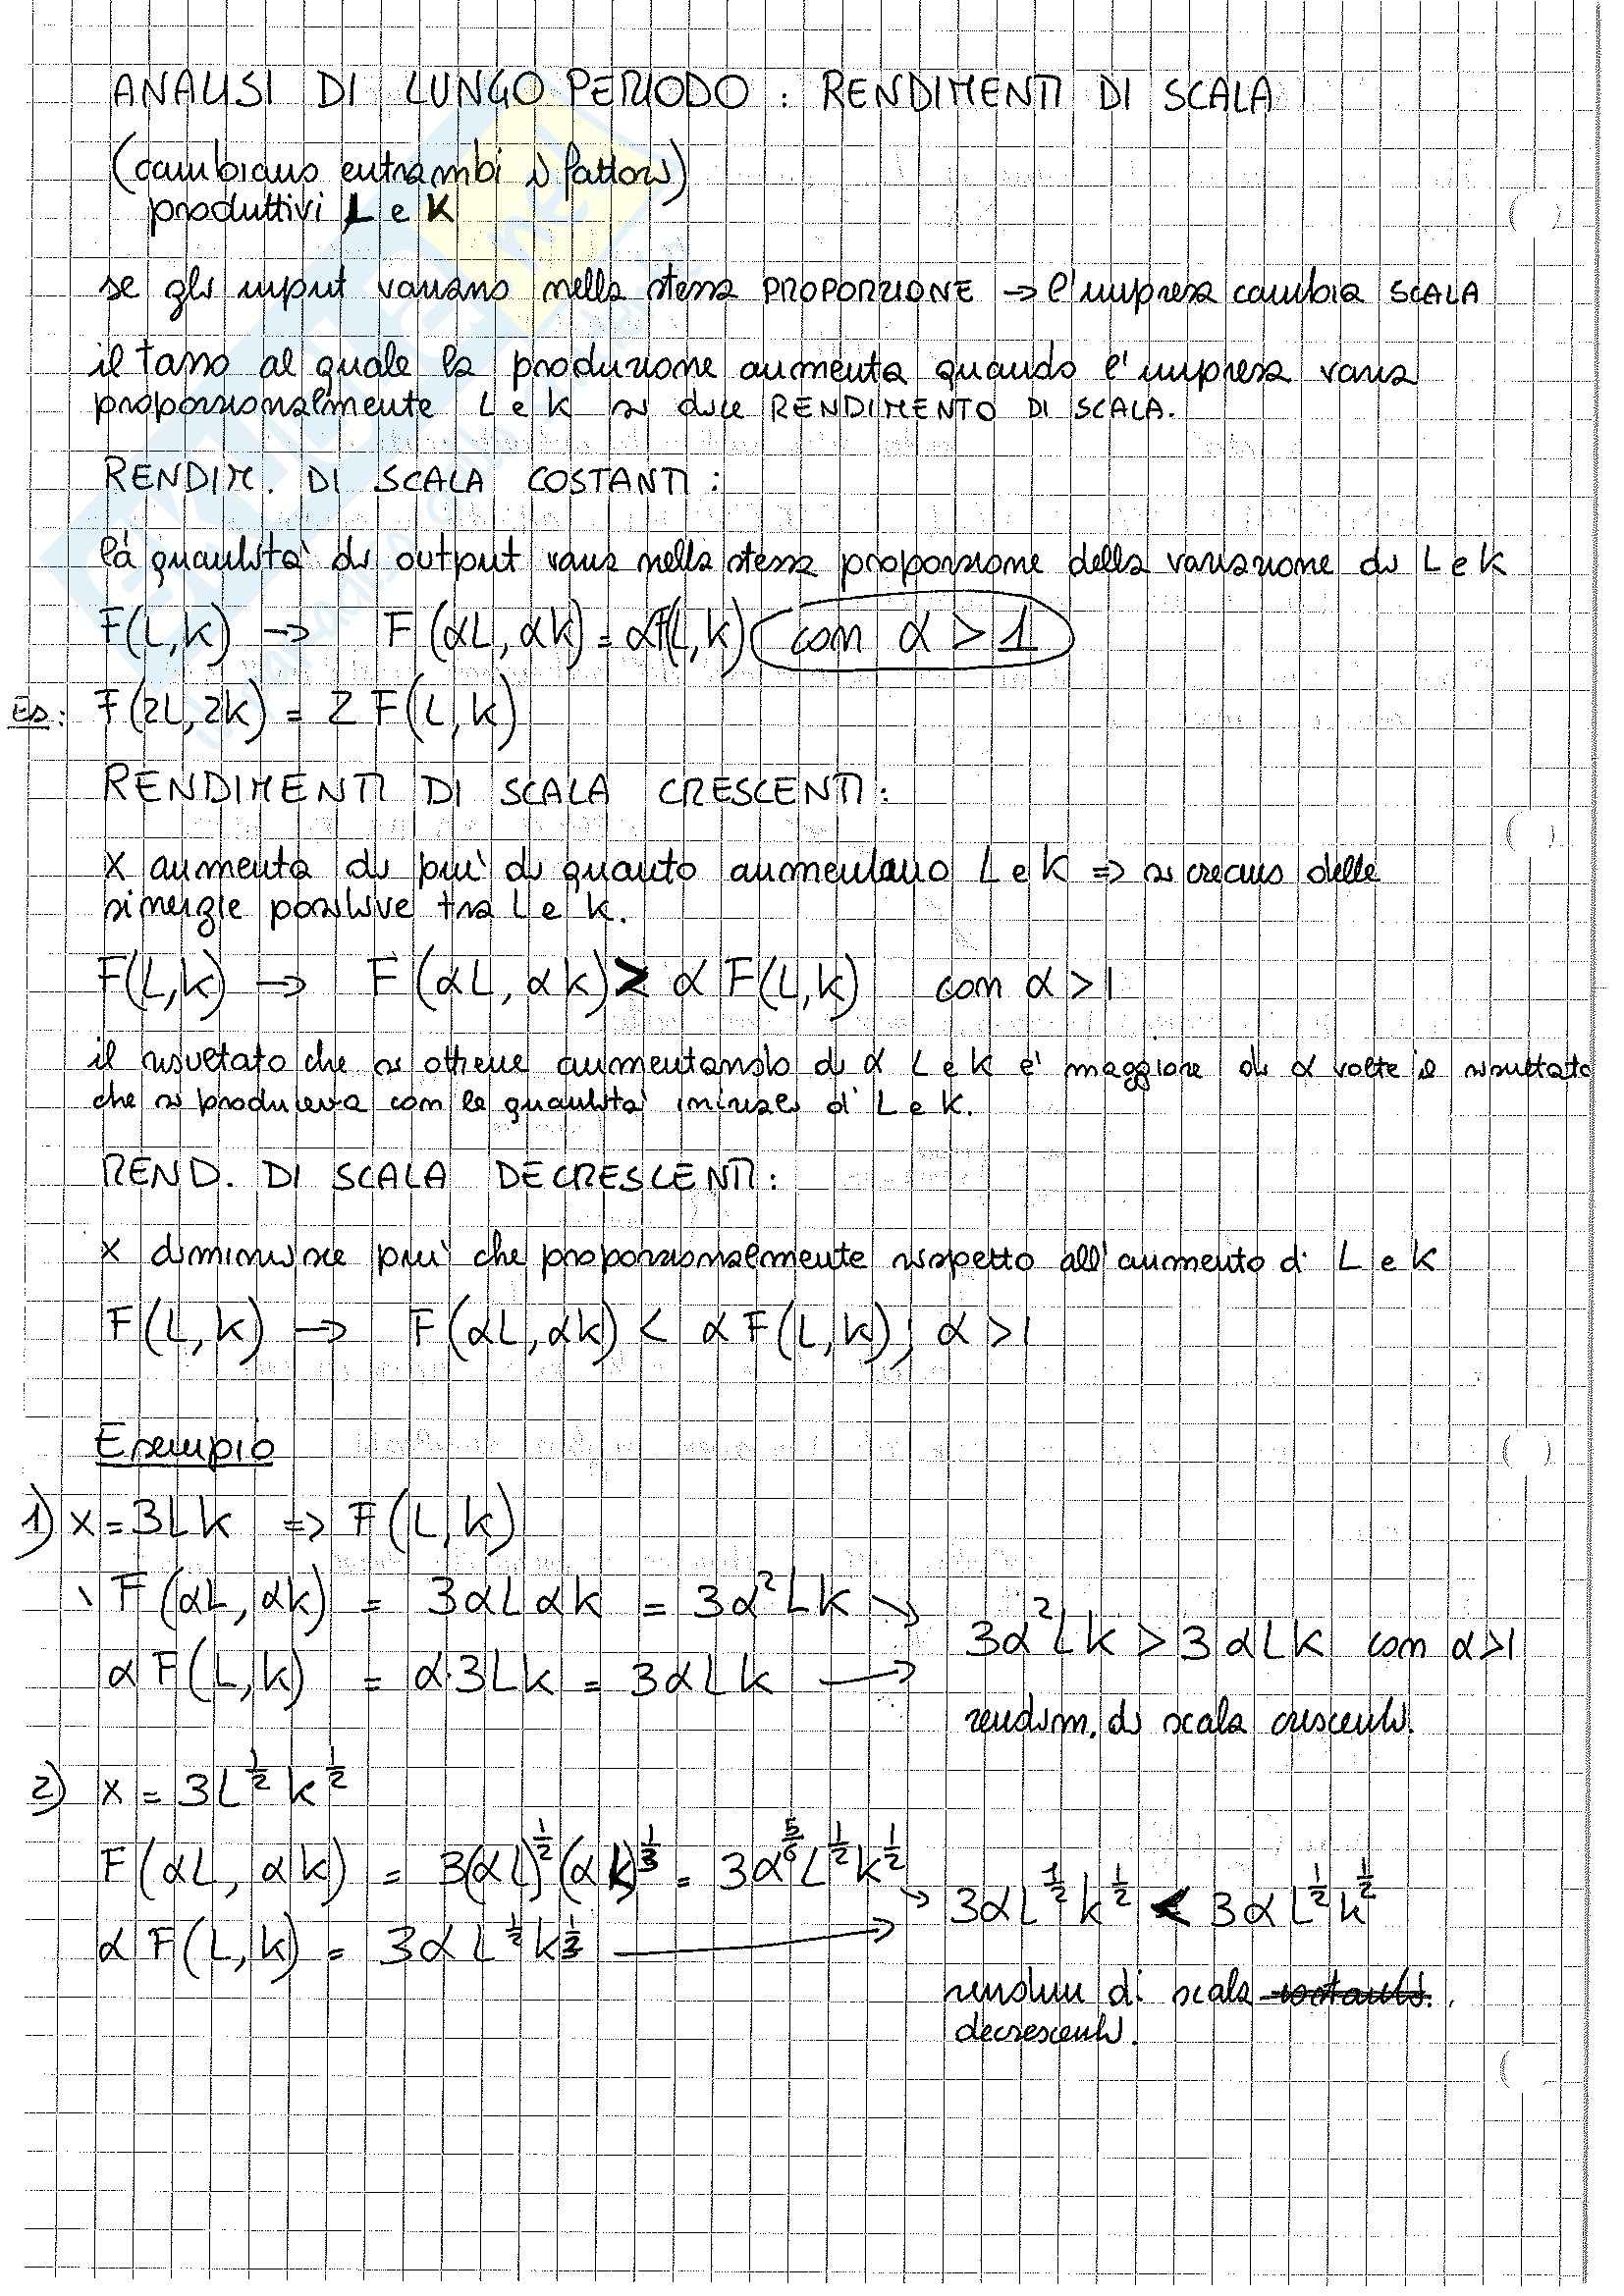 ANALISI DI LUNGO PERIODO : RENDIMENTI DI SCALA
(cambiano entrambi i fattori)
produttivi L e K
se gli input variano nella stessa PROPORZIONE → l'impresa cambia SCALA
il tasso al quale la produzione aumenta quando l'impresa varia
proporzionalmente L e K si dice RENDIMENTO DI SCALA.
RENDIM. DI SCALA COSTANTI :
la quantita' di output varia nella stessa proporzione della variazione di L e K
F(L,K) → F(αL, αK) = αF(L,K) con α > 1
Es: F(2L,2K) = 2 F(L,K)
RENDIMENTI DI SCALA CRESCENTI :
X aumenta di piu' di quanto aumentano L e K ⇒ si creano delle
sinergie positive tra L e K.
F(L,K) → F(αL, αK) > α F(L,K) con α > 1
il risultato che si ottiene aumentando di α L e K e' maggiore di α volte il risultato
che si produceva con le quantita' iniziali di L e K.
REND. DI SCALA DECRESCENTI :
X diminuisce piu' che proporzionalmente rispetto all'aumento di L e K
F(L,K) → F(αL, αK) < α F(L,K) ; α > 1
Esempio
1) X = 3LK ⇒ F(L,K)
F(αL, αK) = 3αLαK = 3α²LK ↘
3α²LK > 3αLK con α>1
αF(L,K) = α·3LK = 3αLK →
rendim. di scala crescenti.
2) X = 3L^½ K^½
F(αL, αK) = 3(αL)^½ (αK)^⅓ = 3α^⅚ L^½ K^½
↘ 3αL^½ K^½ < 3αL^½ K^½
αF(L,K) = 3αL^½ K^⅓ →
rendim di scala costanti.
decrescenti.